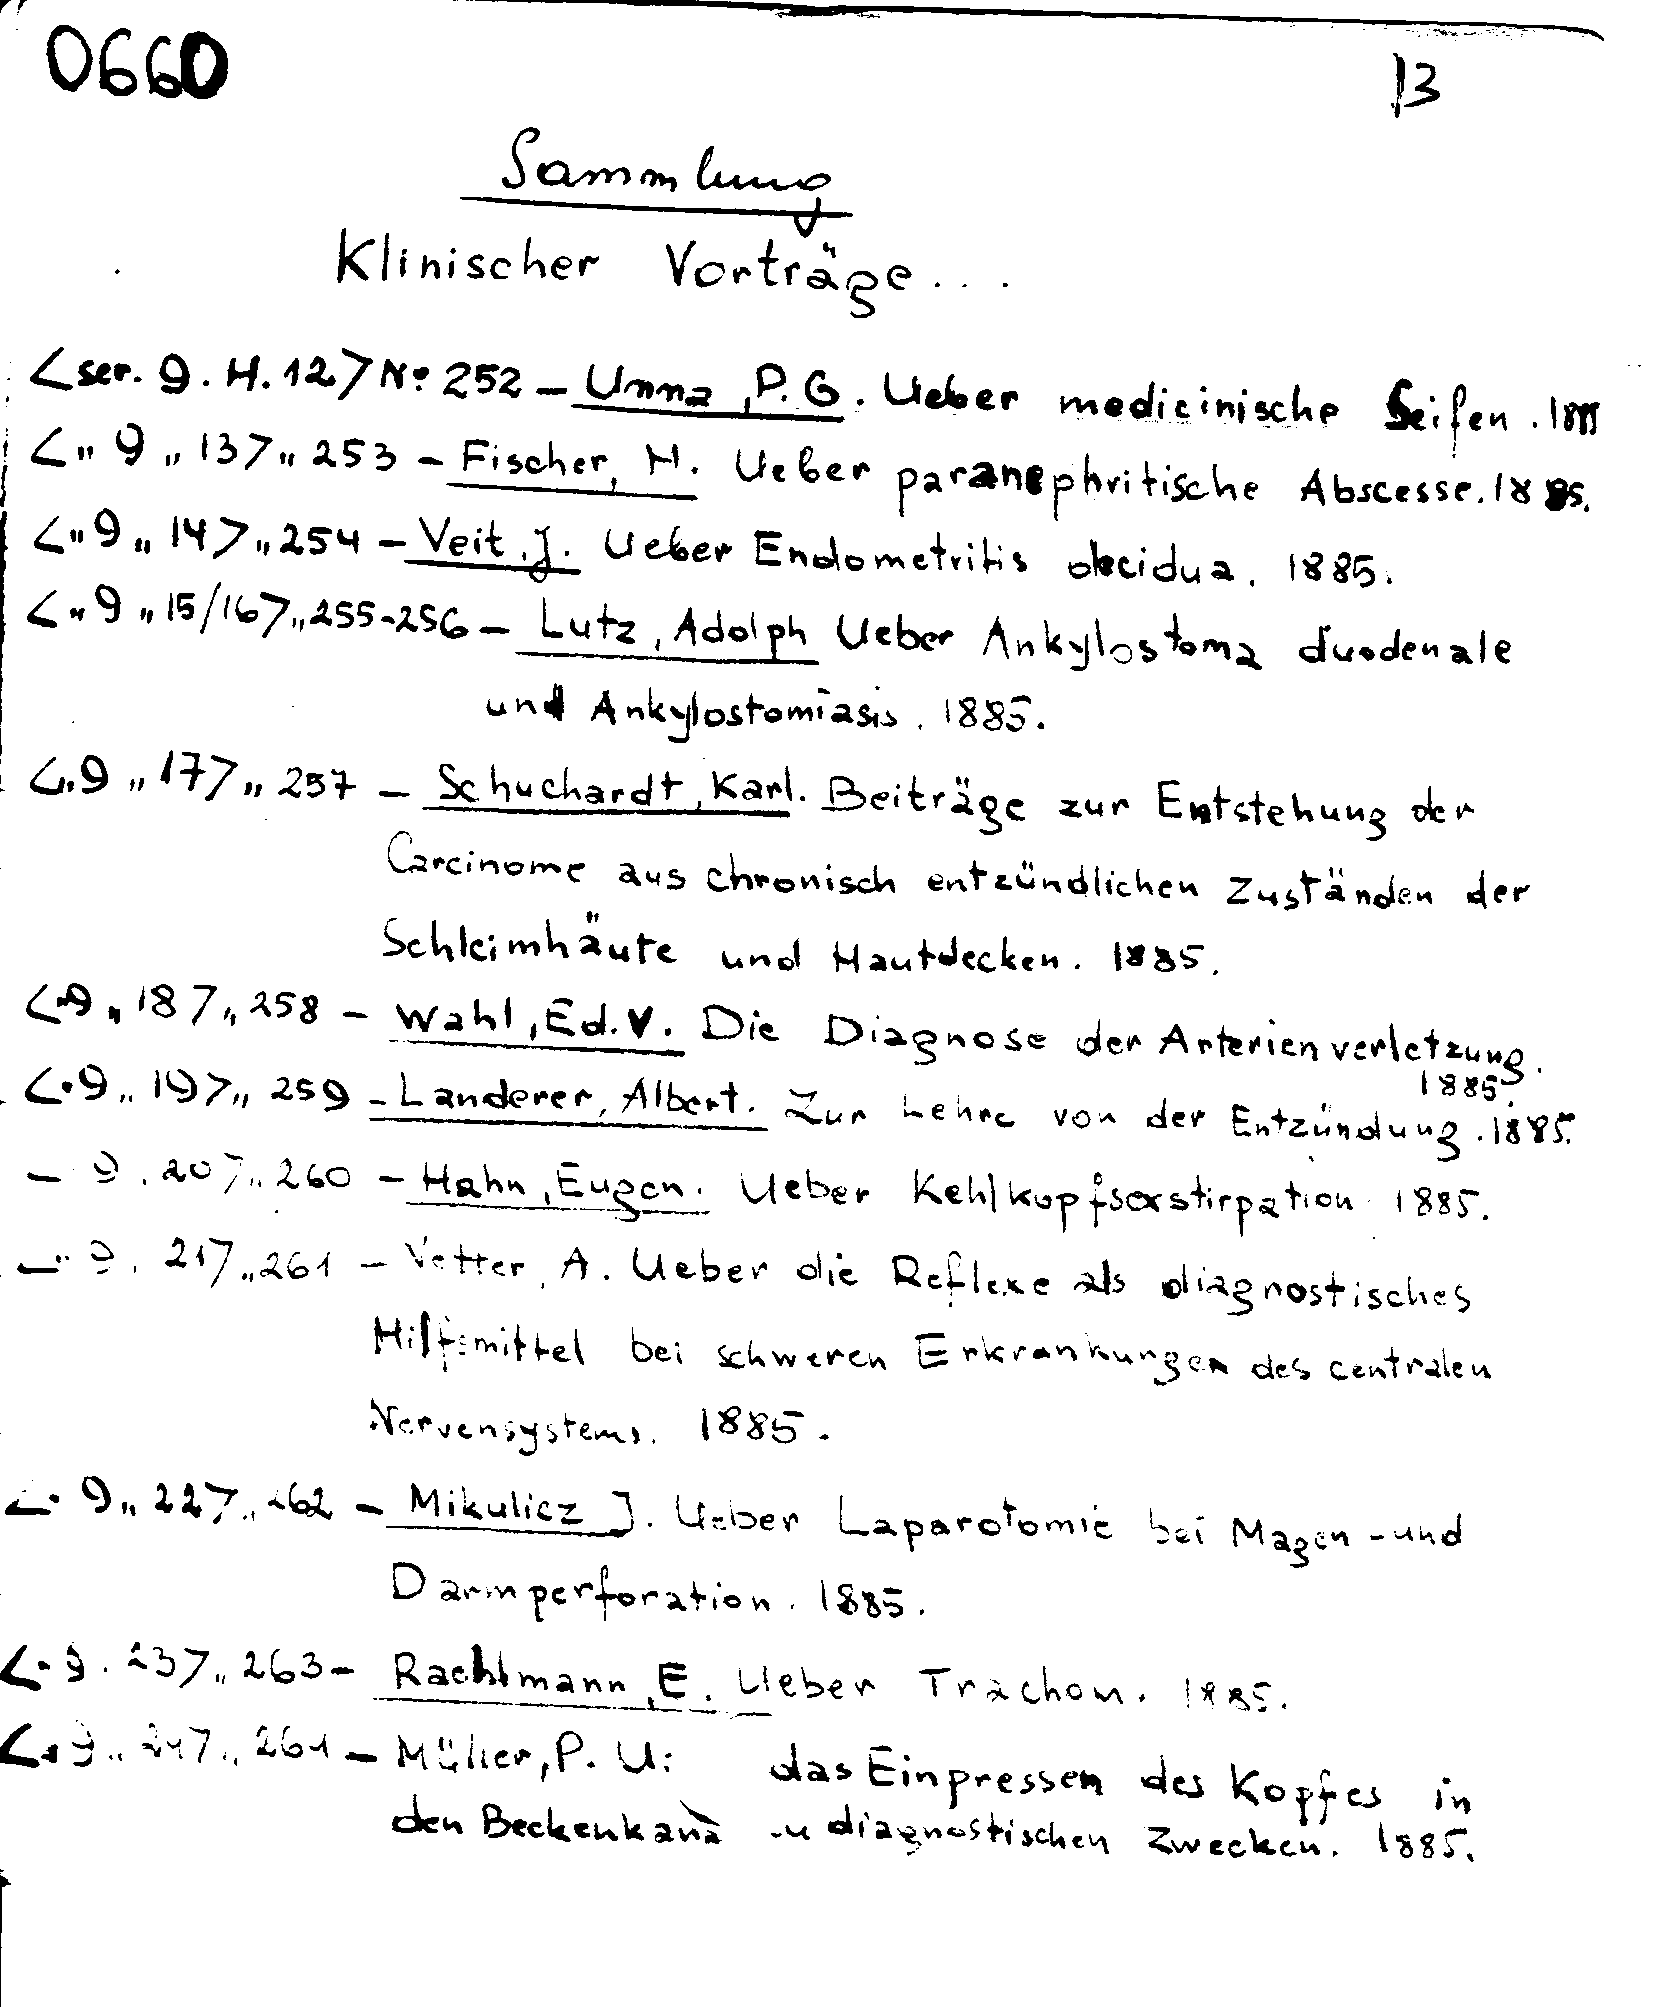 0660
13
Sammlung
Klinischer Vorträge...
<ser. 9. H. 12> No 252 - Unna, P. G. Ueber medicinische Seifen. 1885
<" 9 " 13> " 253 - Fischer, H. Ueber paranephritische Abscesse. 1885.
<" 9 " 14> " 254 - Veit, J. Ueber Endometritis decidua. 1885.
<" 9 " 15/16> " 255-256 - Lutz, Adolph Ueber Ankylostoma duodenale
und Ankylostomiasis. 1885.
<" 9 " 17> " 257 - Schuchardt, Karl. Beiträge zur Entstehung der
Carcinome aus chronisch entzündlichen Zuständen der
Schleimhäute und Hautdecken. 1885.
<" 9 " 18> " 258 - Wahl, Ed. V. Die Diagnose der Arterienverletzung.
1885.
<" 9 " 19> " 259 - Landerer, Albert. Zur Lehre von der Entzündung. 1885.
- 9 . 20> " 260 - Hahn, Eugen. Ueber Kehlkopfsexstirpation 1885.
-" 9 . 21> " 261 - Vetter, A. Ueber die Reflexe als diagnostisches
Hilfsmittel bei schweren Erkrankungen des centralen
Nervensystems. 1885.
<" 9 " 22> " 262 - Mikulicz J. Ueber Laparotomie bei Magen - und
Darmperforation. 1885.
<" 9 . 23> " 263 - Rachlmann, E. Ueber Trachom. 1885.
<" 9 " 24> " 264 - Müller, P. U: das Einpressen des Kopfes in
den Beckenkana diagnostischen Zwecken. 1885.